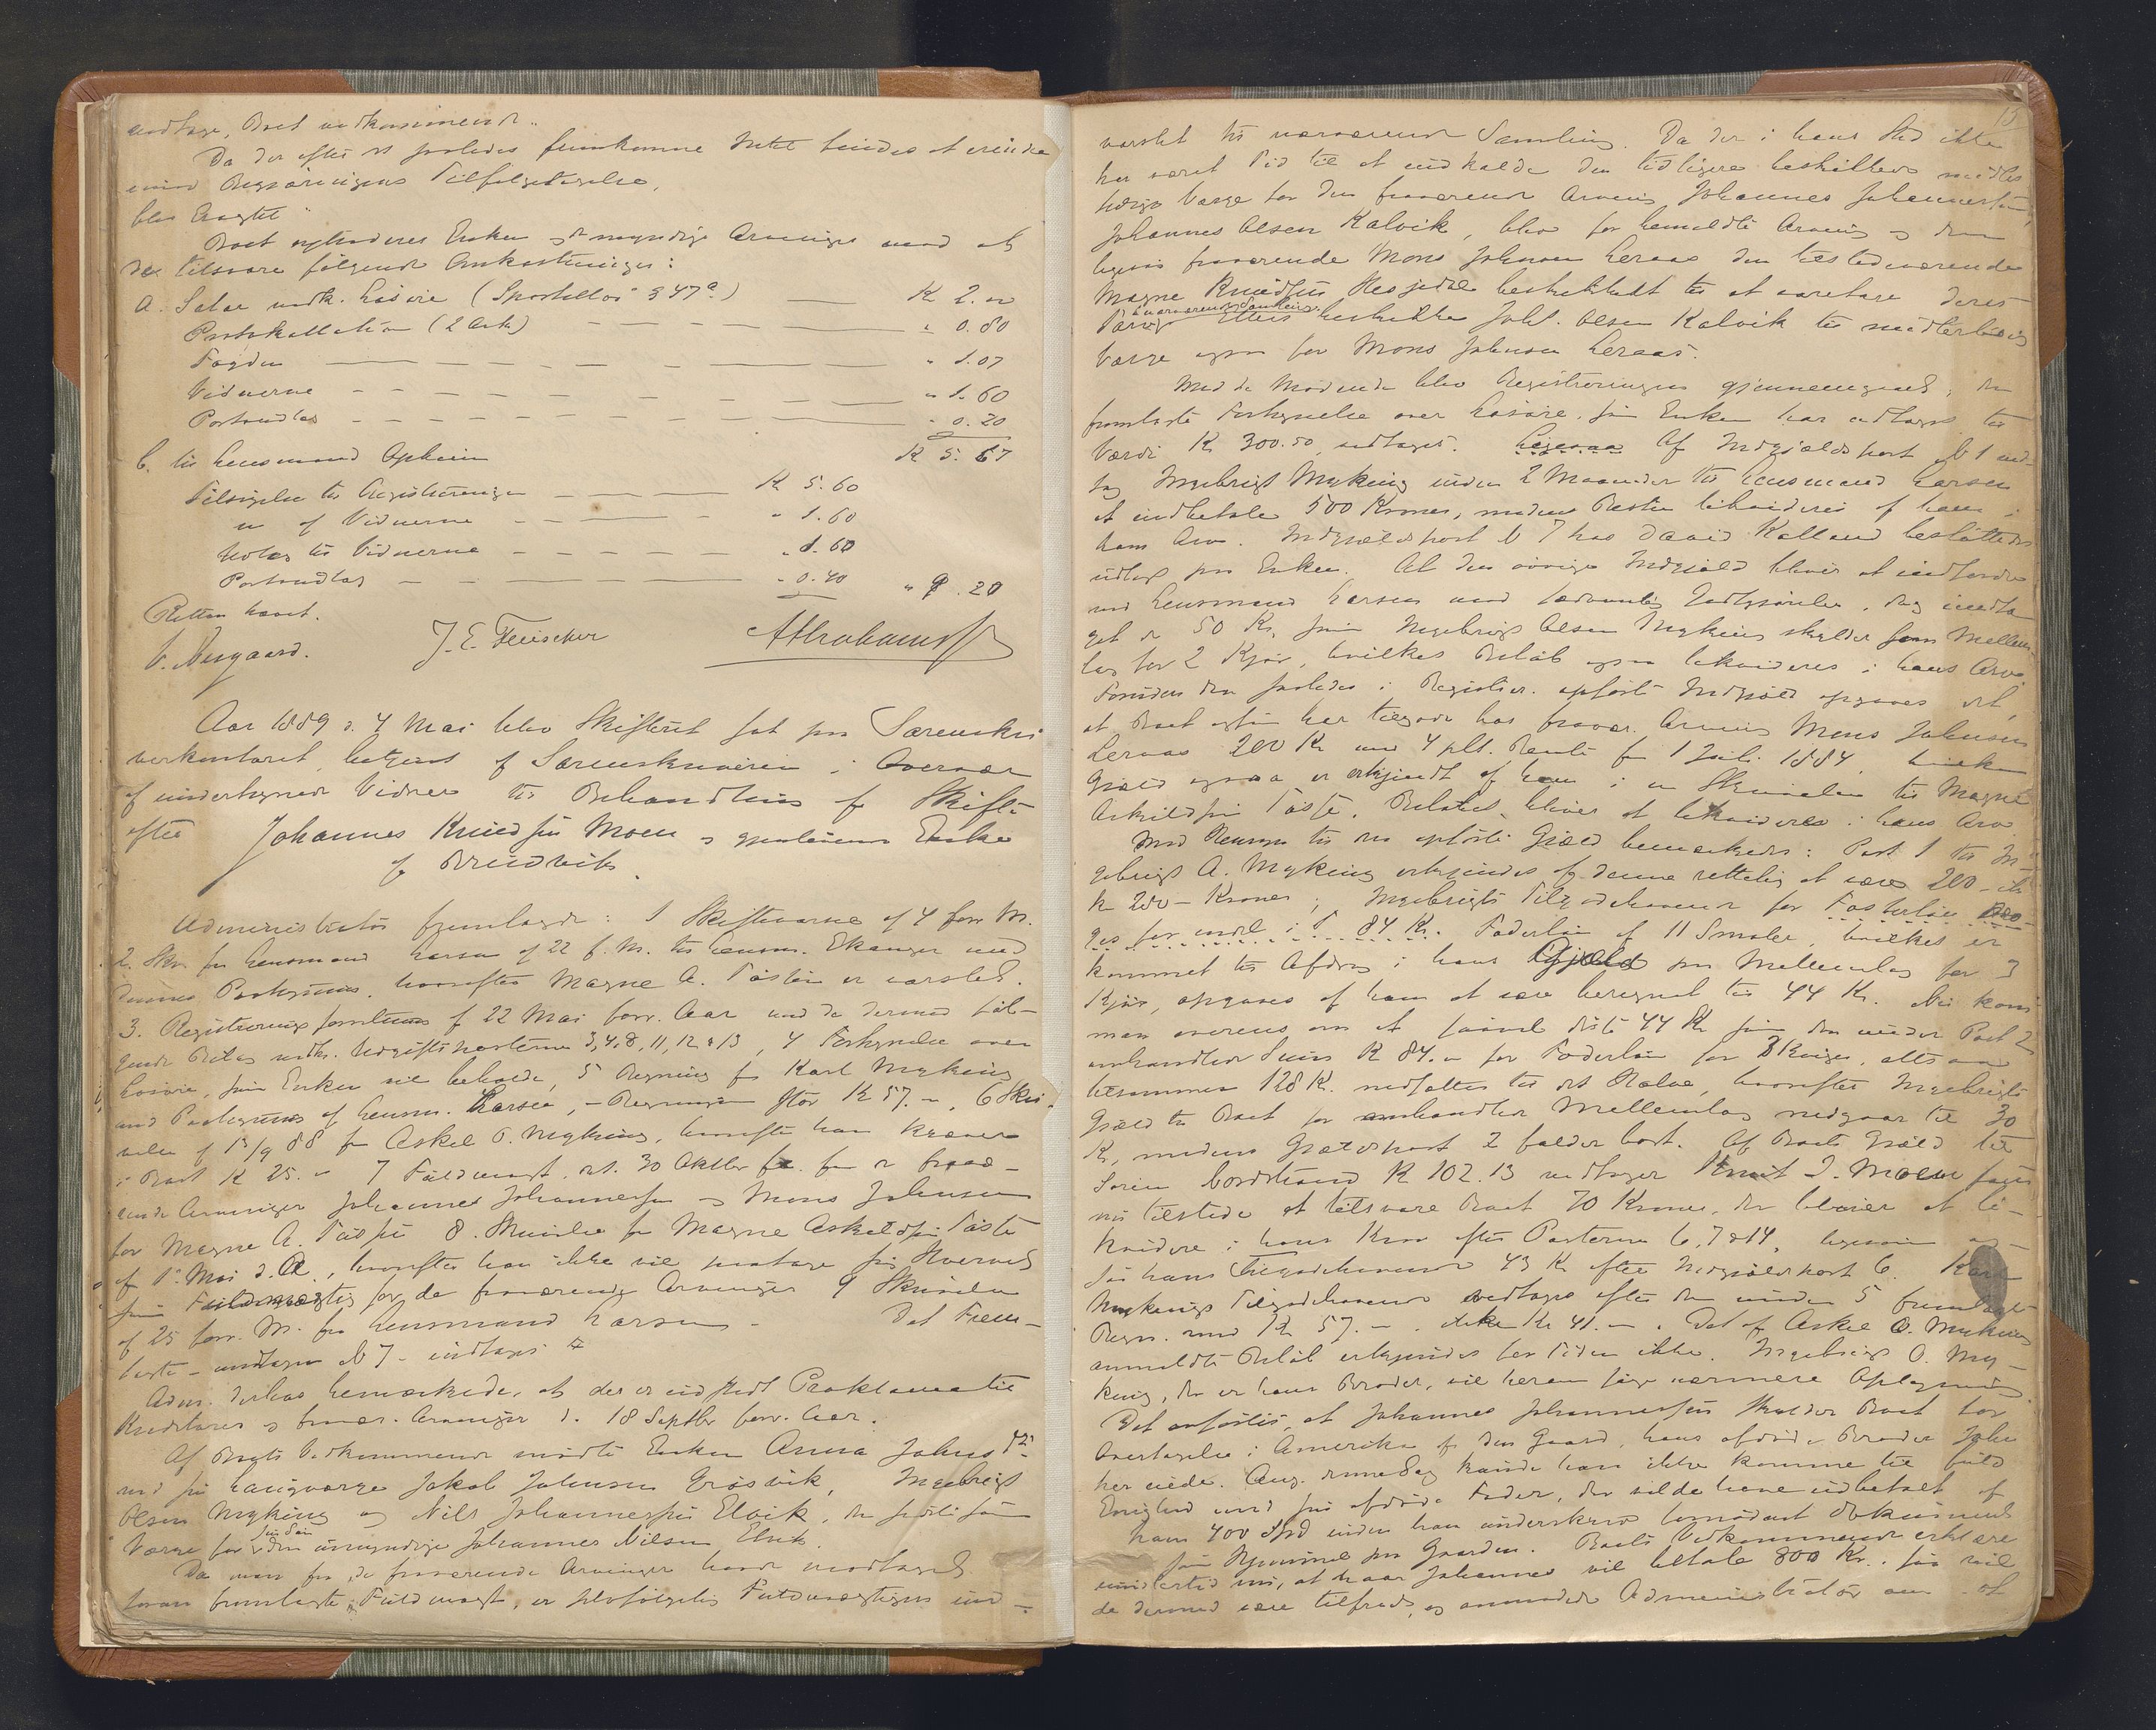 Boet vedkommende.
Da der efter det saaledes fremkomne Intet findes at erindre
mod Begjæringens Tilfølgetagelse,
blev Eragtet
Boet extraderes Enken og de myndige Arvinger mod at
de tilsvare følgende Omkostninger:
a. Salær vedk. Løsøre (Sportellov § 47 a) — K 2.00
Protokollation (2 Ark) — " 0.80
Fogden — " 1.07
Vidnerne — " 1.60
Portoudlæg — " 0.20
K 5.67
b. til Lensmand Opheim
Tilsigelse til Registreringen — K 5.60
" af Vidnerne — " 1.60
til Vidnerne — " 1.60
Portoudlæg — " 0.40 " 9.20
Retten hævet.
V. Neegaard. J. E. Fleischer
Aar 1889 d. 4 Mai blev Skifteret sat paa Sorenskri
verkontoret, betjent af Sorenskriveren i Overvær
af undertegnede Vidner til Behandling af Skifte
efter Johannes Knudssøn Moen og gjenlevende Enke
af Bruvik.
Administrator fremlagde: 1 Skiftevarsel af 4 forr. M.
2. Skr. fra Lensmand Larsen af 22 f. M. til Lensm. Ekanger med
dennes Paategning, hvorefter Magne A. Tøsse er varslet.
3. Registreringsforretning af 22 Mai forr. Aar med de dermed føl-
gende Bilag vedk. Udgiftsposterne 3, 4, 8, 11, 12 & 13, 4 Fortegnelse over
Løsøre, som Enken vil beholde, 5 Regning fra Karl Myking
med Paategning af Lensm. Larsen, – Regningen stor K 57. –, 6 Skri-
velse af 13/9 88 fra Askel O. Myking, hvorefter han kræver
i Boet K 25. – 7 Fuldmagt, dat. 30 Oktbr f.A. fra de fravæ-
rende Arvinger Johannes Johannessen og Mons Johnsen
for Magne A. Tøsse 8. Skrivelse fra Magne Askeldsøn Tøsse
af 1. Mai d. A., hvorefter han ikke vil paatage sig Hvervet
som Fuldmægtig for de fraværende Arvinger 9 Skrivelse
af 25 forr. M. fra Lensmand Larsen – Det Frem-
lagte – undtagen No 7 – indtages
Adm. derhos bemærkede, at der er udstedt Proklama til
Kreditorer og fravær. Arvinger d. 18 Septbr forr. Aar.
Af Boets Vedkommende mødte Enken Anna Johnsdtr
med sin Laugværge Jakob Johnsen Grøsvik, Ingebrigt
Olsen Myking og Nils Johannessen Elvik, den sidste som
Værge for sin Søn den umyndige Johannes Nilsen Elvik.
Da man fra de fraværende Arvinger havde modtaget
foran fremlagte Fuldmagt, er selvfølgelig Fuldmægtigen ind-
15
varslet til nærværende Samling. Da der i hans Sted ikke
har været Tid til at indkalde den tidligere beskikkede midler
tidige Værge for den fraværende Arving Johannes Johannessen,
Johannes Olsen Kalvik, blev for bemeldte Arving og den
ligesaa fraværende Mons Johnsen Leraas den tilstedeværende
Magne Knudssøn Hesjedal beskikket til at varetage deres
Tarv i nærværende Samling. Ellers beskikkes Johs. Olsen Kalvik til midlertidig
Værge ogsaa for Mons Johnsen Leraas.
Med de Mødende blev Registreringen gjennemgaaet; den
fremlagte Fortegnelse over Løsøre, som Enken har udtaget til
Værdi K 300.50, indtages. Af Indgjældspost No 1 ved-
tog Ingebrigt Myking inden 2 Maaneder til Lensmand Larsen
at indbetale 500 Kroner, medens Resten likvideres af ham i
hans Arv. Indgjældspost No 7 hos David Kalland besluttedes
udlagt paa Enken. Al den øvrige Indgjæld bliver at indfordre
ved Lensmand Larsen med lovmedholdig, dog undta
get de 50 Kr, som Ingebrigt Olsen Myking skylder som Mellem-
lag for 2 Kjør, hvilket Beløb ogsaa likvideres i hans Arv.
Foruden den saaledes i Registrer. opførte Indgjæld opgaves det,
at Boet ogsaa har tilgode hos fravær. Arving Mons Johnsen
Leraas 200 Kr med 4 pCt. Rente fra 1 Juli 1884, hvilken
Gjæld ogsaa er erkjendt af ham i en Skrivelse til Magne
Askildsøn Tøsse. Beløbet bliver at likvidere i hans Arv.
Med Hensyn til den opførte Gjæld bemærkedes: Post 1 til In-
gebrigt O. Myking erkjendes af denne rettelig at være 200 – ikke
K 250 – Kroner; Ingebrigts Tilgodehavende for Fosterløn
84 Kr. Foderløn af 11 Smaler, hvilket er
kommet til Afdrag i hans Gjæld paa Mellemlag for 3
Kjør, opgaves af ham at være beregnet til 44 Kr. Nu kom
man overens om at saavel disse 44 Kr som den under Post 2
omhandlede Sum K 84. – for Foderløn for 3 Kviger, altsaa
tilsammen 128 K. nedsættes til det Halve, hvorefter Ingebrigts
Gjæld til Boet for omhandlede Mellemlag nedgaar til 30
K, medens Gjældspost 2 falder bort. Af Boets Gjæld til
Søren Nordstrand K 102.13 vedtager Knut J. Moen som
nu tilstede at tilsvare Boet 70 Kroner, der bliver at li-
kvidere i hans Krav efter Posterne 6, 7 & 14, ligesom og-
saa hans Tilgodehavende 43 K efter Indgjældspost 6. Karl
Mykings Tilgodehavende vedtages efter den under 5 fremlagte
Regn. med K 57. –, ikke Kr 41. –. Det af Askel O. Myking
anmeldte Beløb erkjendes for Tiden ikke. Ingebrigt O. My-
king, der er hans Broder, vil herom søge nærmere Oplysning.
Det anførtes, at Johannes Johannessøn skylder Boet for
Overtagelse i Amerika af den Gaard, hans afdøde Broder John
her eiede. Ang. denne Sag kunde han ikke komme til fuld
Enighed med sin afdøde Fader, der vilde have udbetalt af
ham 400 Spd inden han underskrev fornødent Dokument
som Hjemmel paa Gaarden. Boets Vedkommende erklære
imidlertid nu, at naar Johannes vil betale 800 Kr. saa vil
de dermed være tilfreds, og anmodede Administrator om at